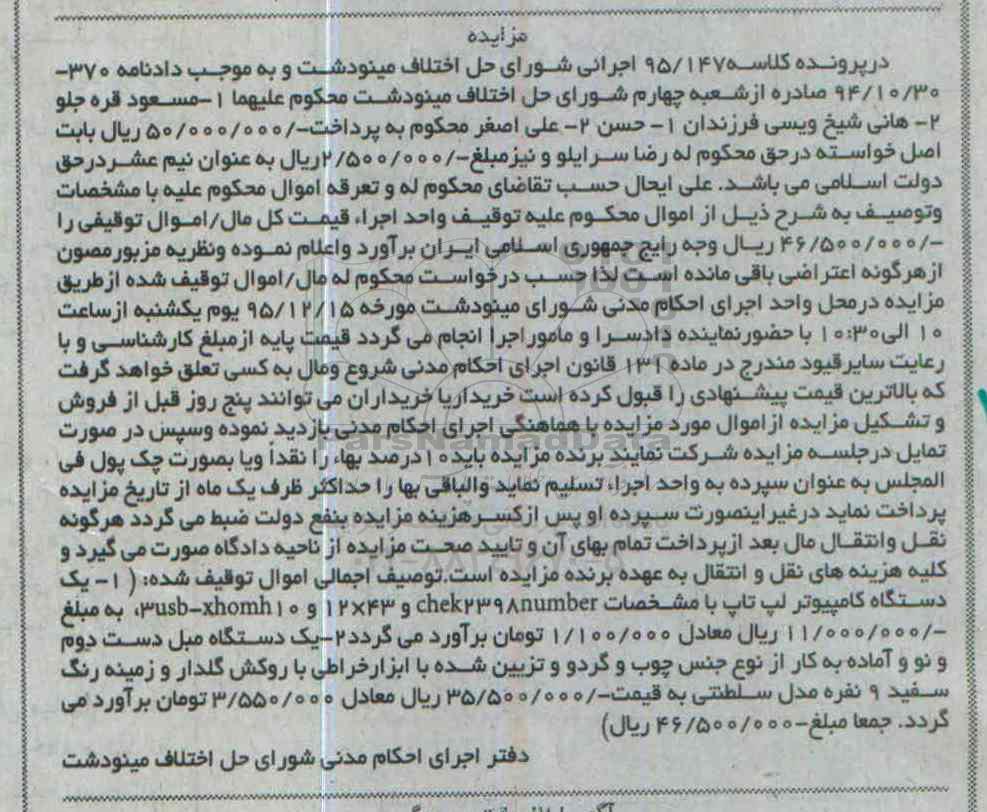 مزایده
درپرونده کلاسه۹۵/۱۴۷ اجرائی شورای حل اختلاف مینودشت و به موجب دادنامه ۳۷۰-
۹۴/۱۰/۳۰ صادره ازشعبه چهارم شورای حل اختلاف مینودشت محکوم علیهما ۱-مسعود قره جلو
۲- هانی شیخ ویسی فرزندان ۱- حسن ۲- علی اصغر محکوم به پرداخت-/۵۰/۰۰۰/۰۰۰ ریال بابت
اصل خواسته درحق محکوم له رضا سرایلو و نیزمبلغ-/۲/۵۰۰/۰۰۰ریال به عنوان نیم عشردرحق
دولت اسلامی می باشد. علی ایحال حسب تقاضای محکوم له و تعرفه اموال محکوم علیه با مشخصات
وتوصیف به شرح ذیل از اموال محکوم علیه توقیف واحد اجراء قیمت کل مال/اموال توقیفی را
-/۴۶/۵۰۰/۰۰۰ ریال وجه رایج جمهوری اسلامی ایران برآورد واعلام نموده ونظریه مزبورمصون
ازهرگونه اعتراضی باقی مانده است لذا حسب درخواست محکوم له مال/اموال توقیف شده ازطریق
مزایده درمحل واحد اجرای احکام مدنی شورای مینودشت مورخه ۹۵/۱۲/۱۵ یوم یکشنبه ازساعت
۱۰ الی۱۰:۳۰ با حضورنماینده دادسرا و ماموراجرا انجام می گردد قیمت پایه ازمبلغ کارشناسی و با
رعایت سایرقیود مندرج در ماده ۱۳۱ قانون اجرای احکام مدنی شروع ومال به کسی تعلق خواهد گرفت
که بالاترین قیمت پیشنهادی را قبول کرده است خریداریا خریداران می توانند پنج روز قبل از فروش
و تشکیل مزایده ازاموال مورد مزایده با هماهنگی اجرای احکام مدنی بازدید نموده وسپس در صورت
تمایل درجلسه مزایده شرکت نمایند برنده مزایده باید۱۰درصد بهاء را نقداً ویا بصورت چک پول فی
المجلس به عنوان سپرده به واحد اجراء تسلیم نماید والباقی بها را حداکثر ظرف یک ماه از تاریخ مزایده
پرداخت نماید درغیراینصورت سپرده او پس ازکسرهزینه مزایده بنفع دولت ضبط می گردد هرگونه
نقل وانتقال مال بعد ازپرداخت تمام بهای آن و تایید صحت مزایده از ناحیه دادگاه صورت می گیرد و
کلیه هزینه های نقل و انتقال به عهده برنده مزایده است.توصیف اجمالی اموال توقیف شده: ( ۱- یک
دستگاه کامپیوتر لپ تاپ با مشخصات chek۲۳۹۸number و ۴۳×۱۲ و ۳usb-xhomh۱۰، به مبلغ
-/۱۱/۰۰۰/۰۰۰ ریال معادل ۱/۱۰۰/۰۰۰ تومان برآورد می گردد۲-یک دستگاه مبل دست دوم
و نو و آماده به کار از نوع جنس چوب و گردو و تزیین شده با ابزارخراطی با روکش گلدار و زمینه رنگ
سفید ۹ نفره مدل سلطنتی به قیمت-/۳۵/۵۰۰/۰۰۰ ریال معادل ۳/۵۵۰/۰۰۰ تومان برآورد می
گردد. جمعا مبلغ-۴۶/۵۰۰/۰۰۰ ریال)
دفتر اجرای احکام مدنی شورای حل اختلاف مینودشت
ParsNamadData